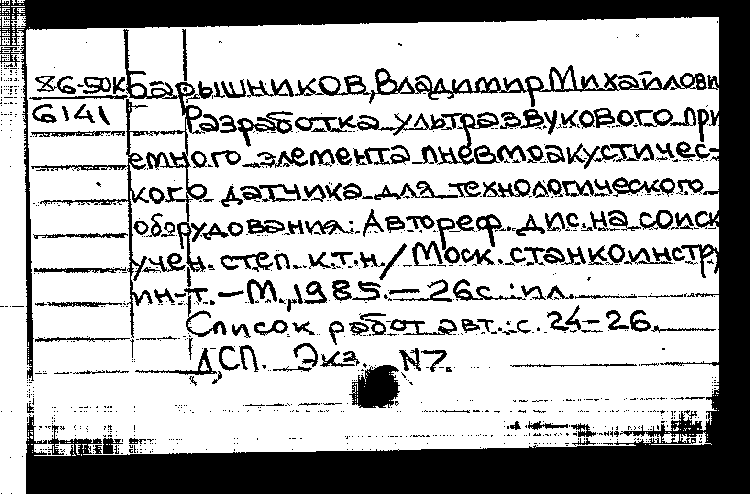 86-50К Барышников, Владимир Михайлови
6141 Разработка ультразвукового при
емного элемента пневмоакустичес-
кого датчика для технологического
оборудования: Автореф. дис. на соиск
учен. степ. к.т.н. / Моск. станкоинстру
ин-т. — М., 1985. — 26с.: ил.
Список работ авт.: с. 24-26.
ДСП. Экз. N7.